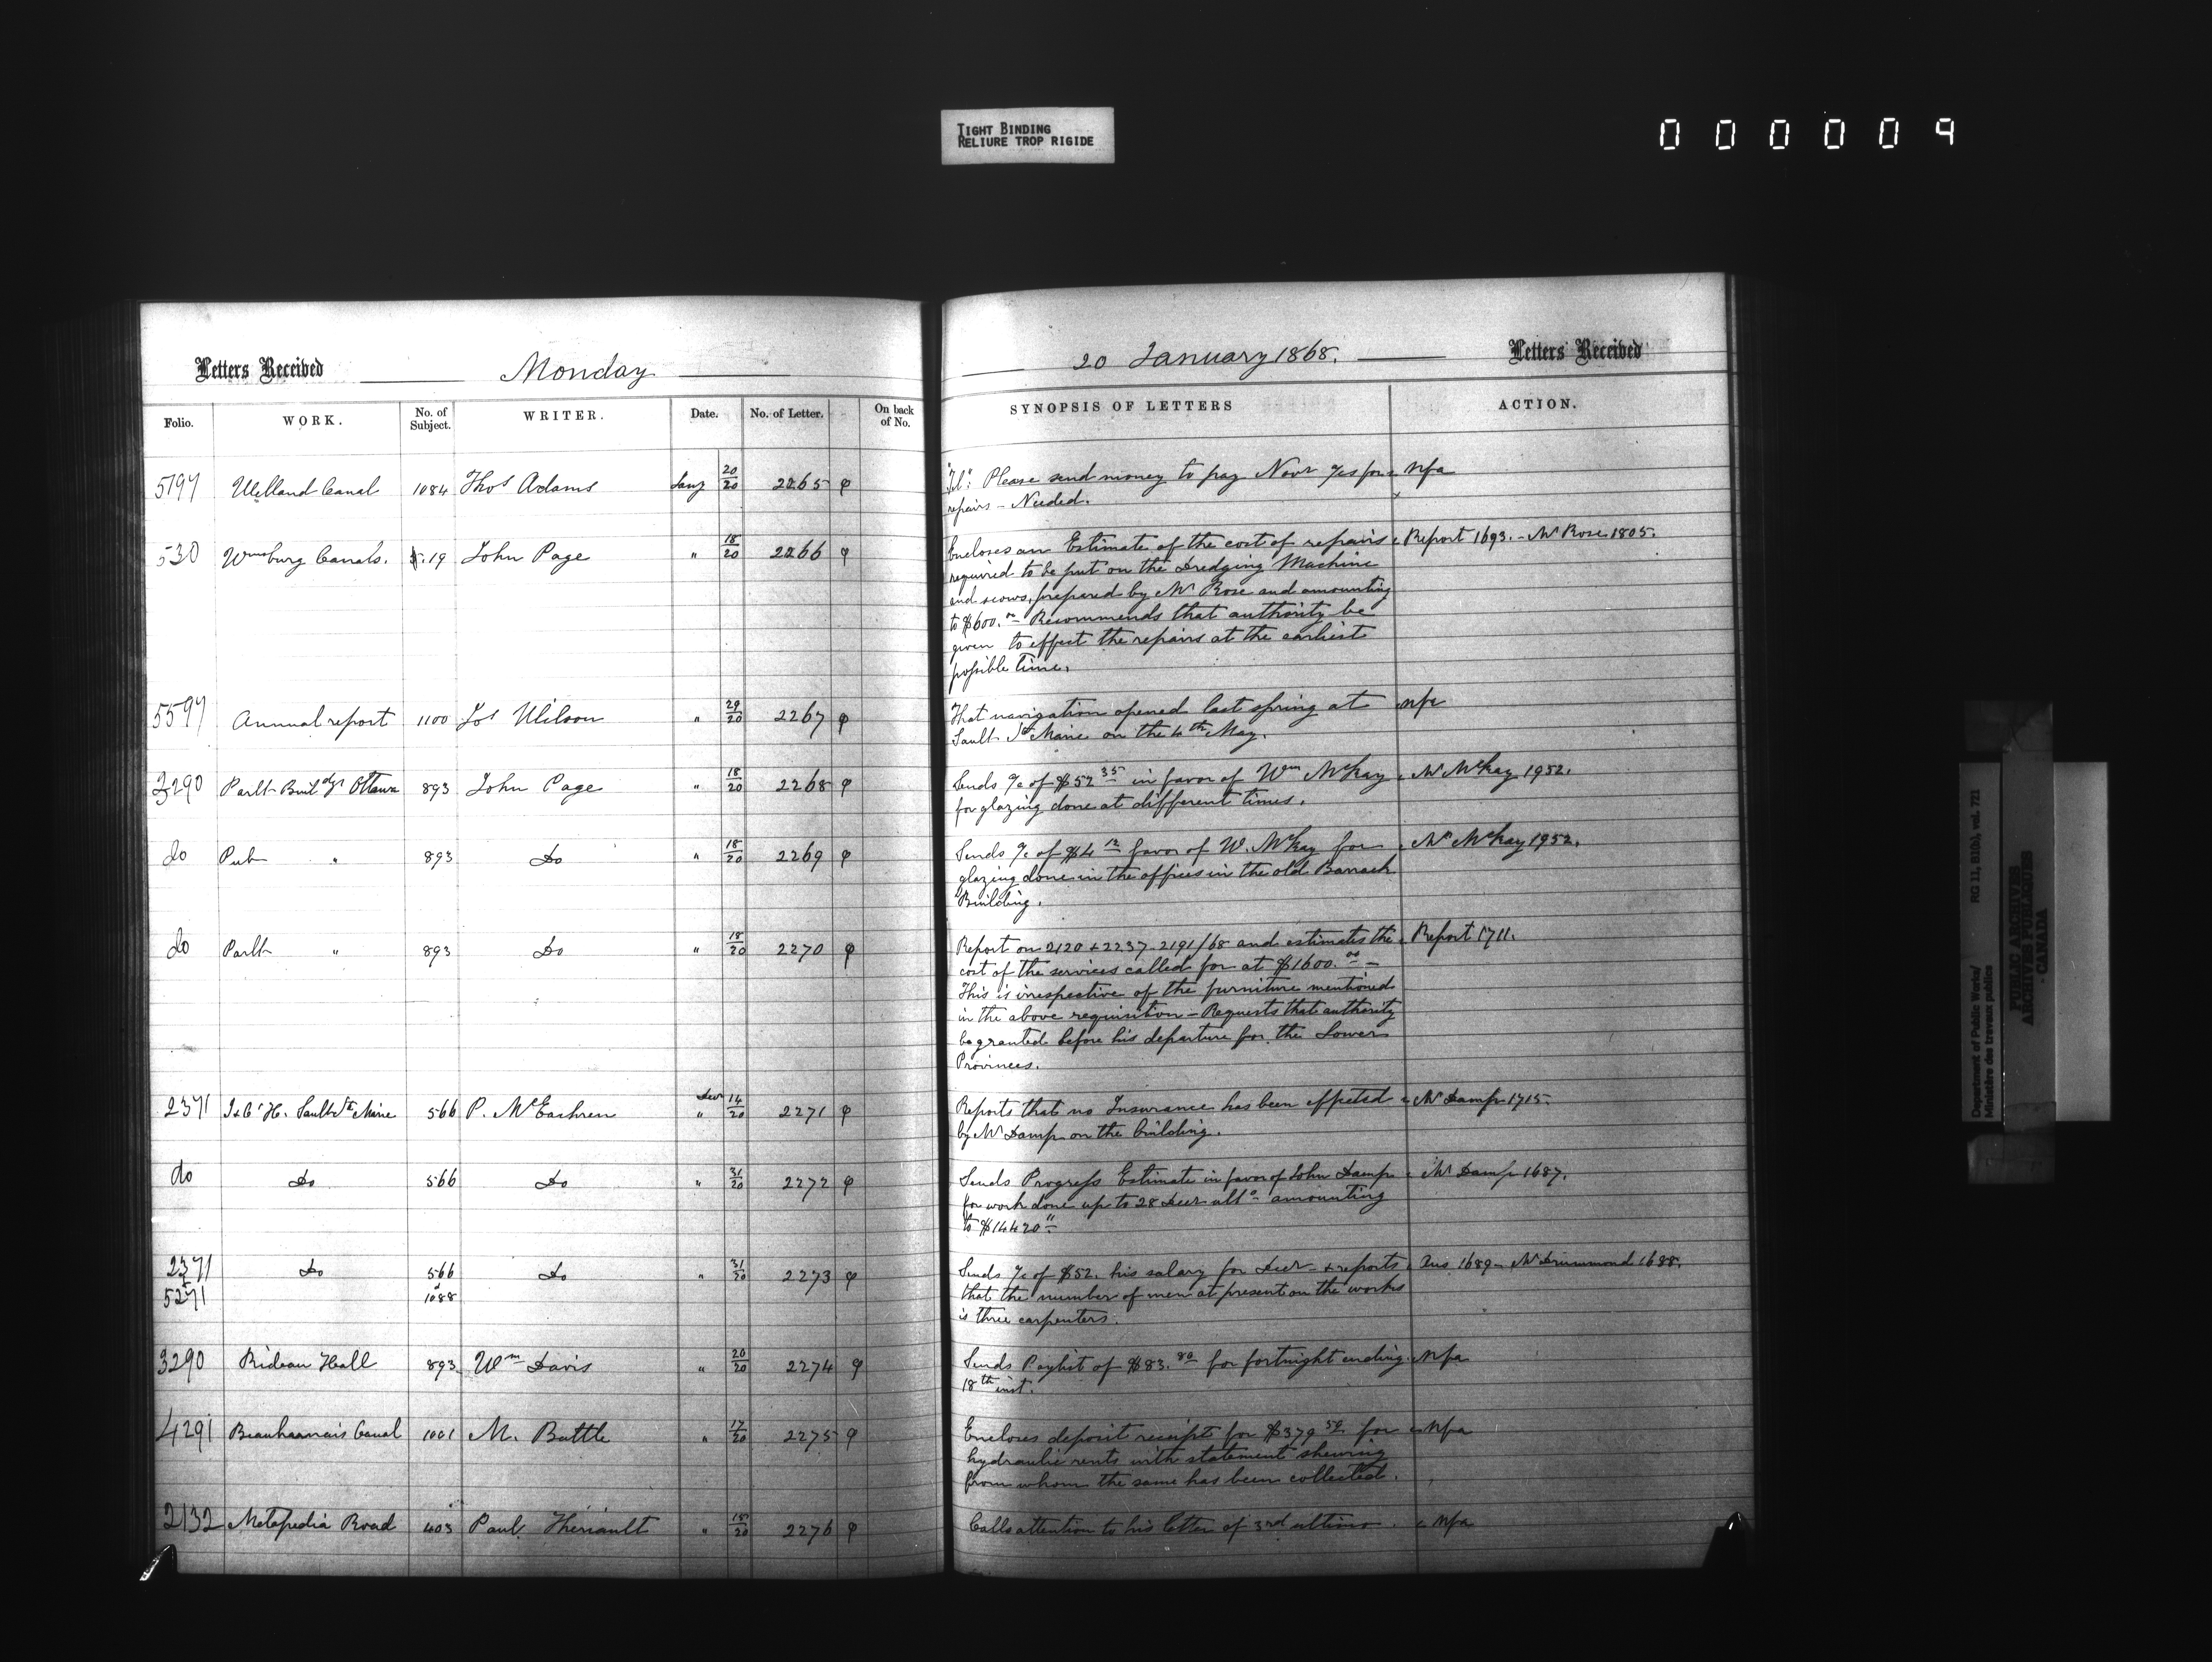 TIGHT BINDING
RELIURE TROP RIGIDE
000009
Letters Received Monday
20 January 1868. Letters Received
Folio. WORK. No. of Subject. WRITER. Date. No. of Letter. On back of No.
SYNOPSIS OF LETTERS ACTION.
5197 Welland Canal 1084 Thos Adams Jany 20/20 2265 φ
"Tel": Please send money to pay Novr a/cs for nfa
repairs - Needed.
530 Wmsburg Canals. 19 John Page " 18/20 2266 φ
Encloses an Estimate of the cost of repairs Report 1693. - Mr Rose 1805.
required to be put on the Dredging Machine
and scows, prepared by Mr Rose and amounting
to $600.00 Recommends that authority be
given to effect the repairs at the earliest
possible time.
5597 Annual report 1100 Jos Wilson " 29/20 2267 φ
That navigation opened last spring at nfa
Sault Ste Marie on the 4th May.
3290 Parlt Buildgs Ottawa 893 John Page " 18/20 2268 φ
Sends a/c of $52 35 in favor of Wm McKay Mr McKay 1952.
for glazing done at different times.
do Pub " 893 Do " 18/20 2269 φ
Sends a/c of $4 12 favor of W. McKay for Mr McKay 1952.
glazing done in the offices in the old Barrack
Building.
do Parlt " 893 Do " 18/20 2270 φ
Report on 2120 + 2237 - 2191/68 and estimates the Report 1711.
cost of the services called for at $1600.00 -
This is irrespective of the furniture mentioned
in the above requisition - Requests that authority
be granted before his departure for the Lower
Provinces.
2371 J & C H. Sault Ste Marie 566 P. McEachren Decr " 14/20 2271 φ
Reports that no Insurance has been effected Mr Damp 1715.
by Mr Damp on the building.
do Do 566 Do " 31/20 2272 φ
Sends Progress Estimate in favor of John Damp Mr Damp 1687.
for work done up to 28 Decr ulto amounting
to $14420
2371 & 5271 Do 566 & 1088 Do " 31/20 2273 φ
Sends a/c of $52. his salary for Decr - & reports Aus 1689 - Mr Drummond 1688.
that the number of men at present on the works
is three carpenters.
3290 Rideau Hall 893 Wm Davis " 20/20 2274 φ
Sends Paylist of $83.80 for fortnight ending nfa
18th inst.
4291 Beauharnais Canal 1001 M. Battle " 17/20 2275 φ
Encloses deposit receipt for $379 50 for nfa
hydraulic rents with statement shewing
from whom the same has been collected.
2132 Metapedia Road 403 Paul Theriault " 15/20 2276 φ
Calls attention to his letter of 3rd ultimo. nfa
Department of Public Works/ RG 11, B1(b), vol. 721
Ministère des travaux publics
PUBLIC ARCHIVES
ARCHIVES PUBLIQUES
CANADA